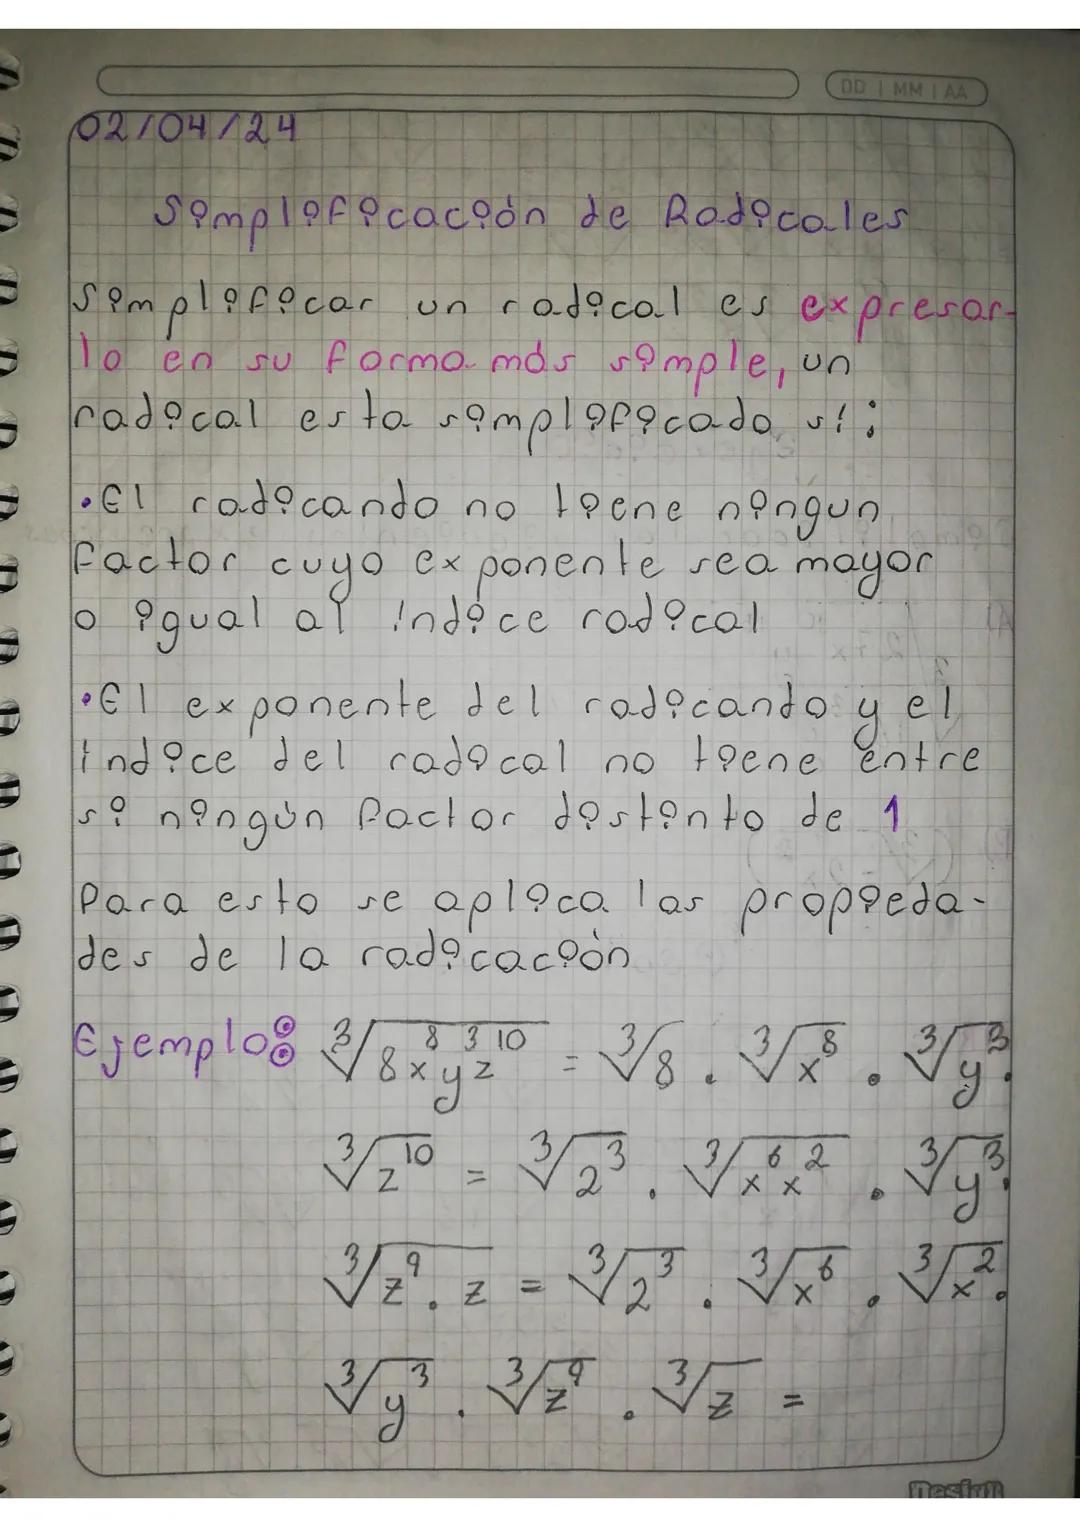 DD | MM | AA
02/04/24
Simplificación de Radicales
Simplificar un radical es expresar-
lo en su forma más simple, un
radical esta simplificado si:
•El radicando no tiene ningun
factor cuyo exponente sea mayor
o igual al índice radical
•El exponente del radicando y el
índice del radical no tiene entre
si ningún factor distinto de 1
Para esto se aplica las propieda-
des de la radicación
Ejemplo: ∛(8x⁸y³z¹⁰) = ∛8 . ∛x⁸ . ∛y³ .
∛z¹⁰ = ∛2³ . ∛(x⁶x²) . ∛y³ .
∛(z⁹ . z) = ∛2³ . ∛x⁶ . ∛x² .
∛y³ . ∛z⁹ . ∛z =
Design